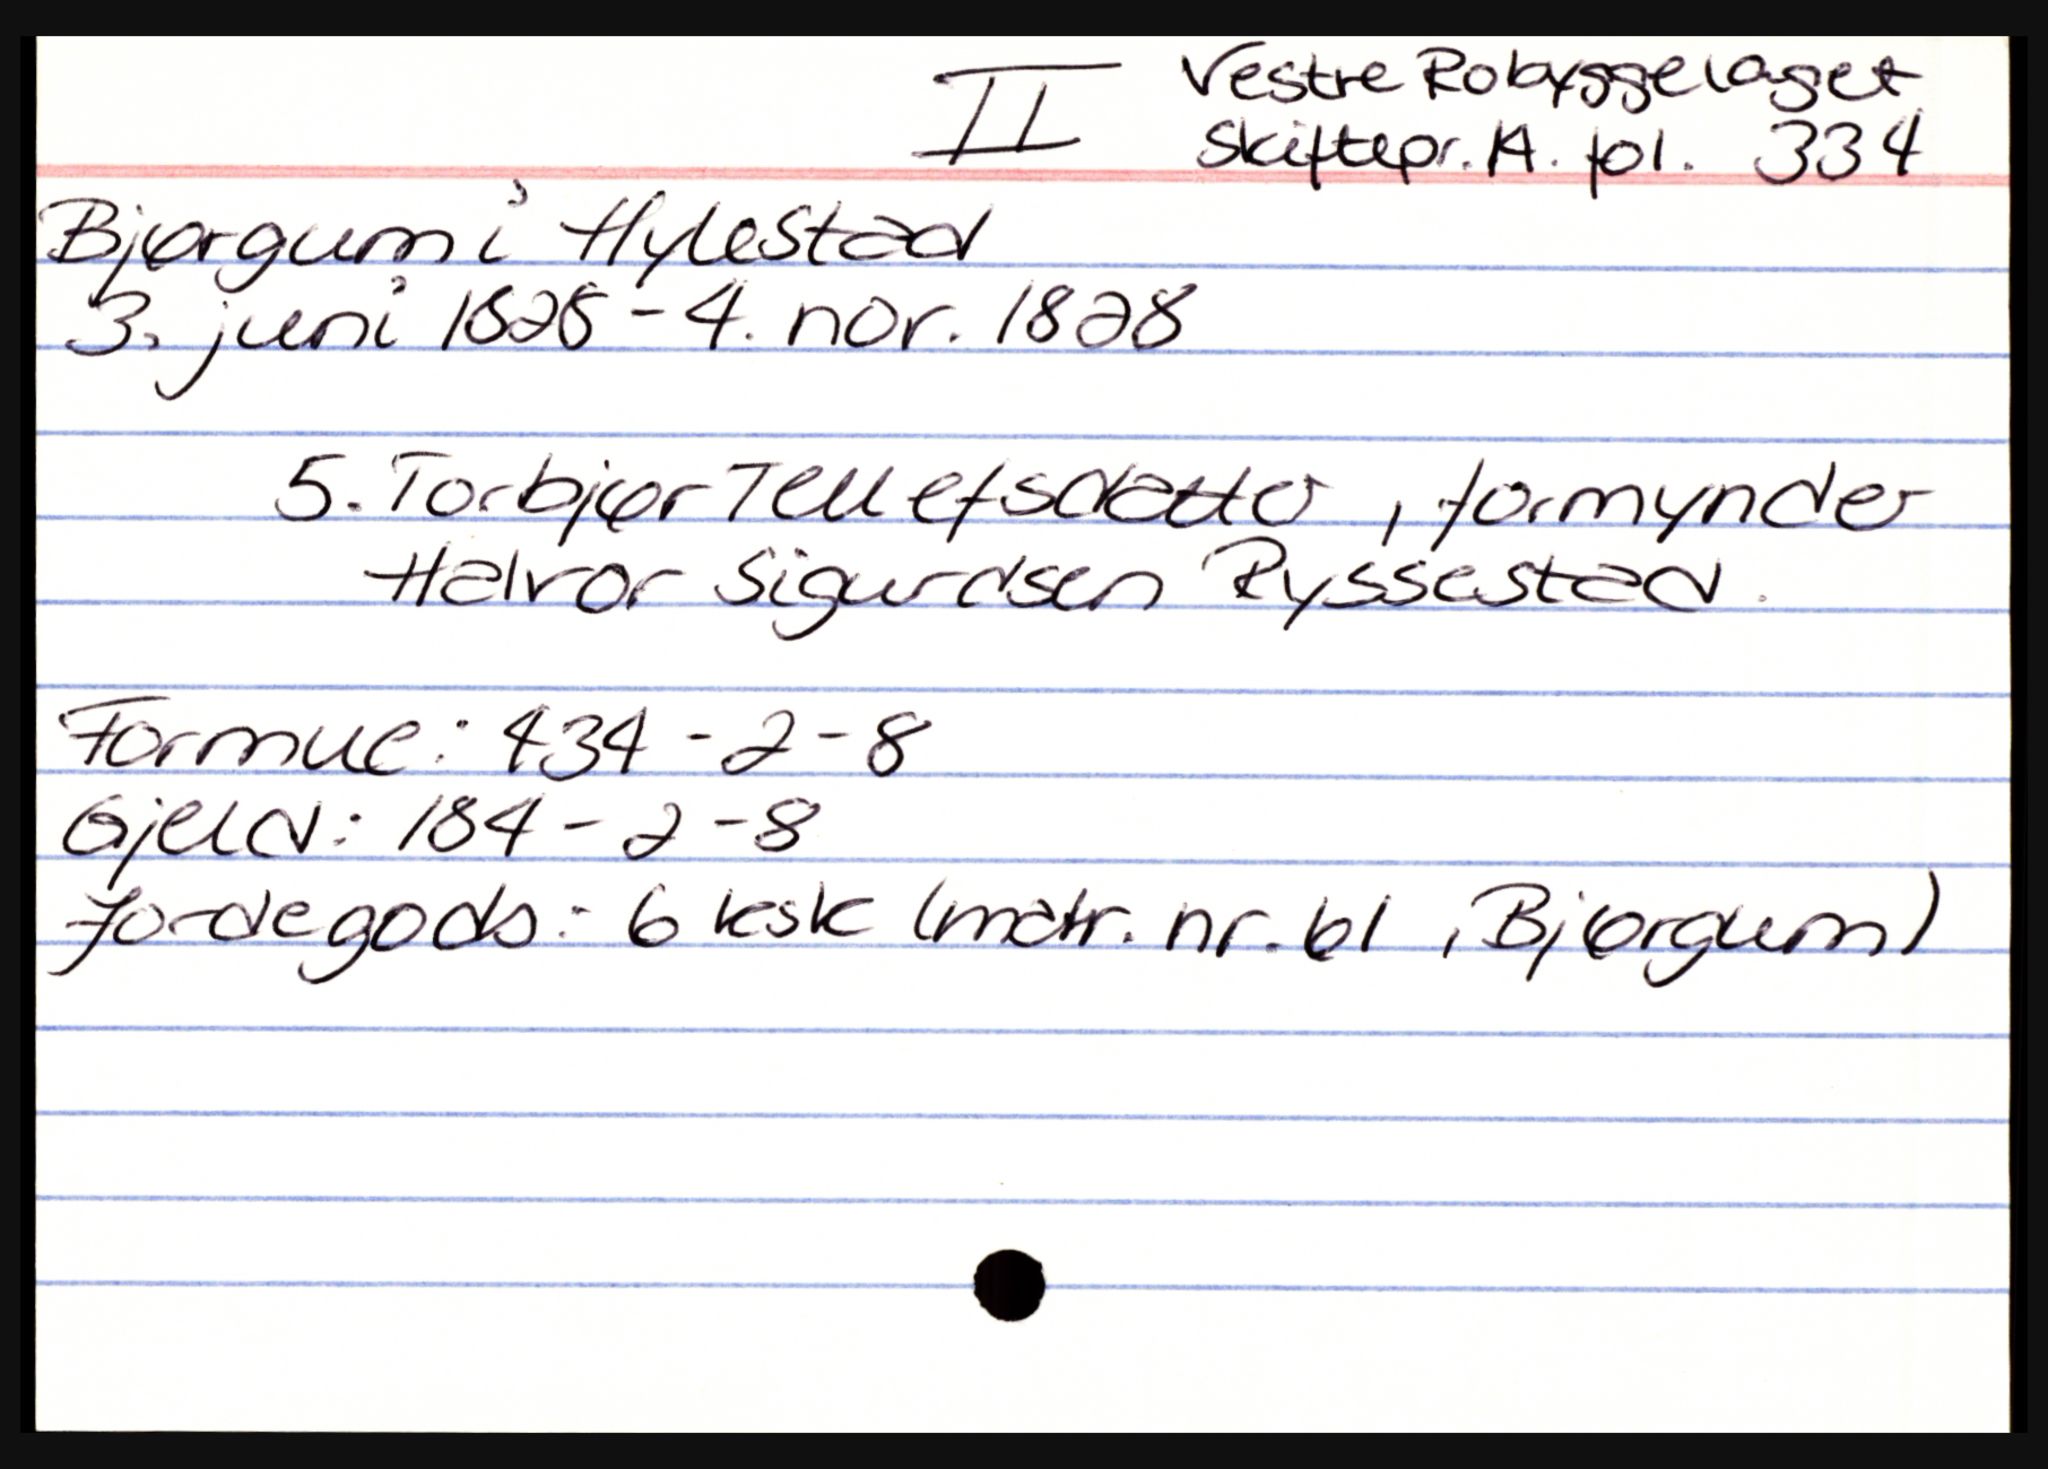 II Vestre Robyggelaget
Skiftepr. 1A. fol. 334
Bjørgum i Hylestad
3. juni 1828 - 4. nov. 1828
5. Torbjør Tellefsdatter, formynder
Halvor Sigurdsen Ryssestad.
Formue: 434 - 2 - 8
Gjeld: 184 - 2 - 8
Jordegods: 6 ksk (matr. nr. 61, Bjørgum)